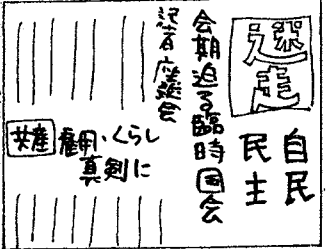 迷走
自民
民主
会期迫る臨時国会
記者座談会
共産
雇用・くらし
真剣に